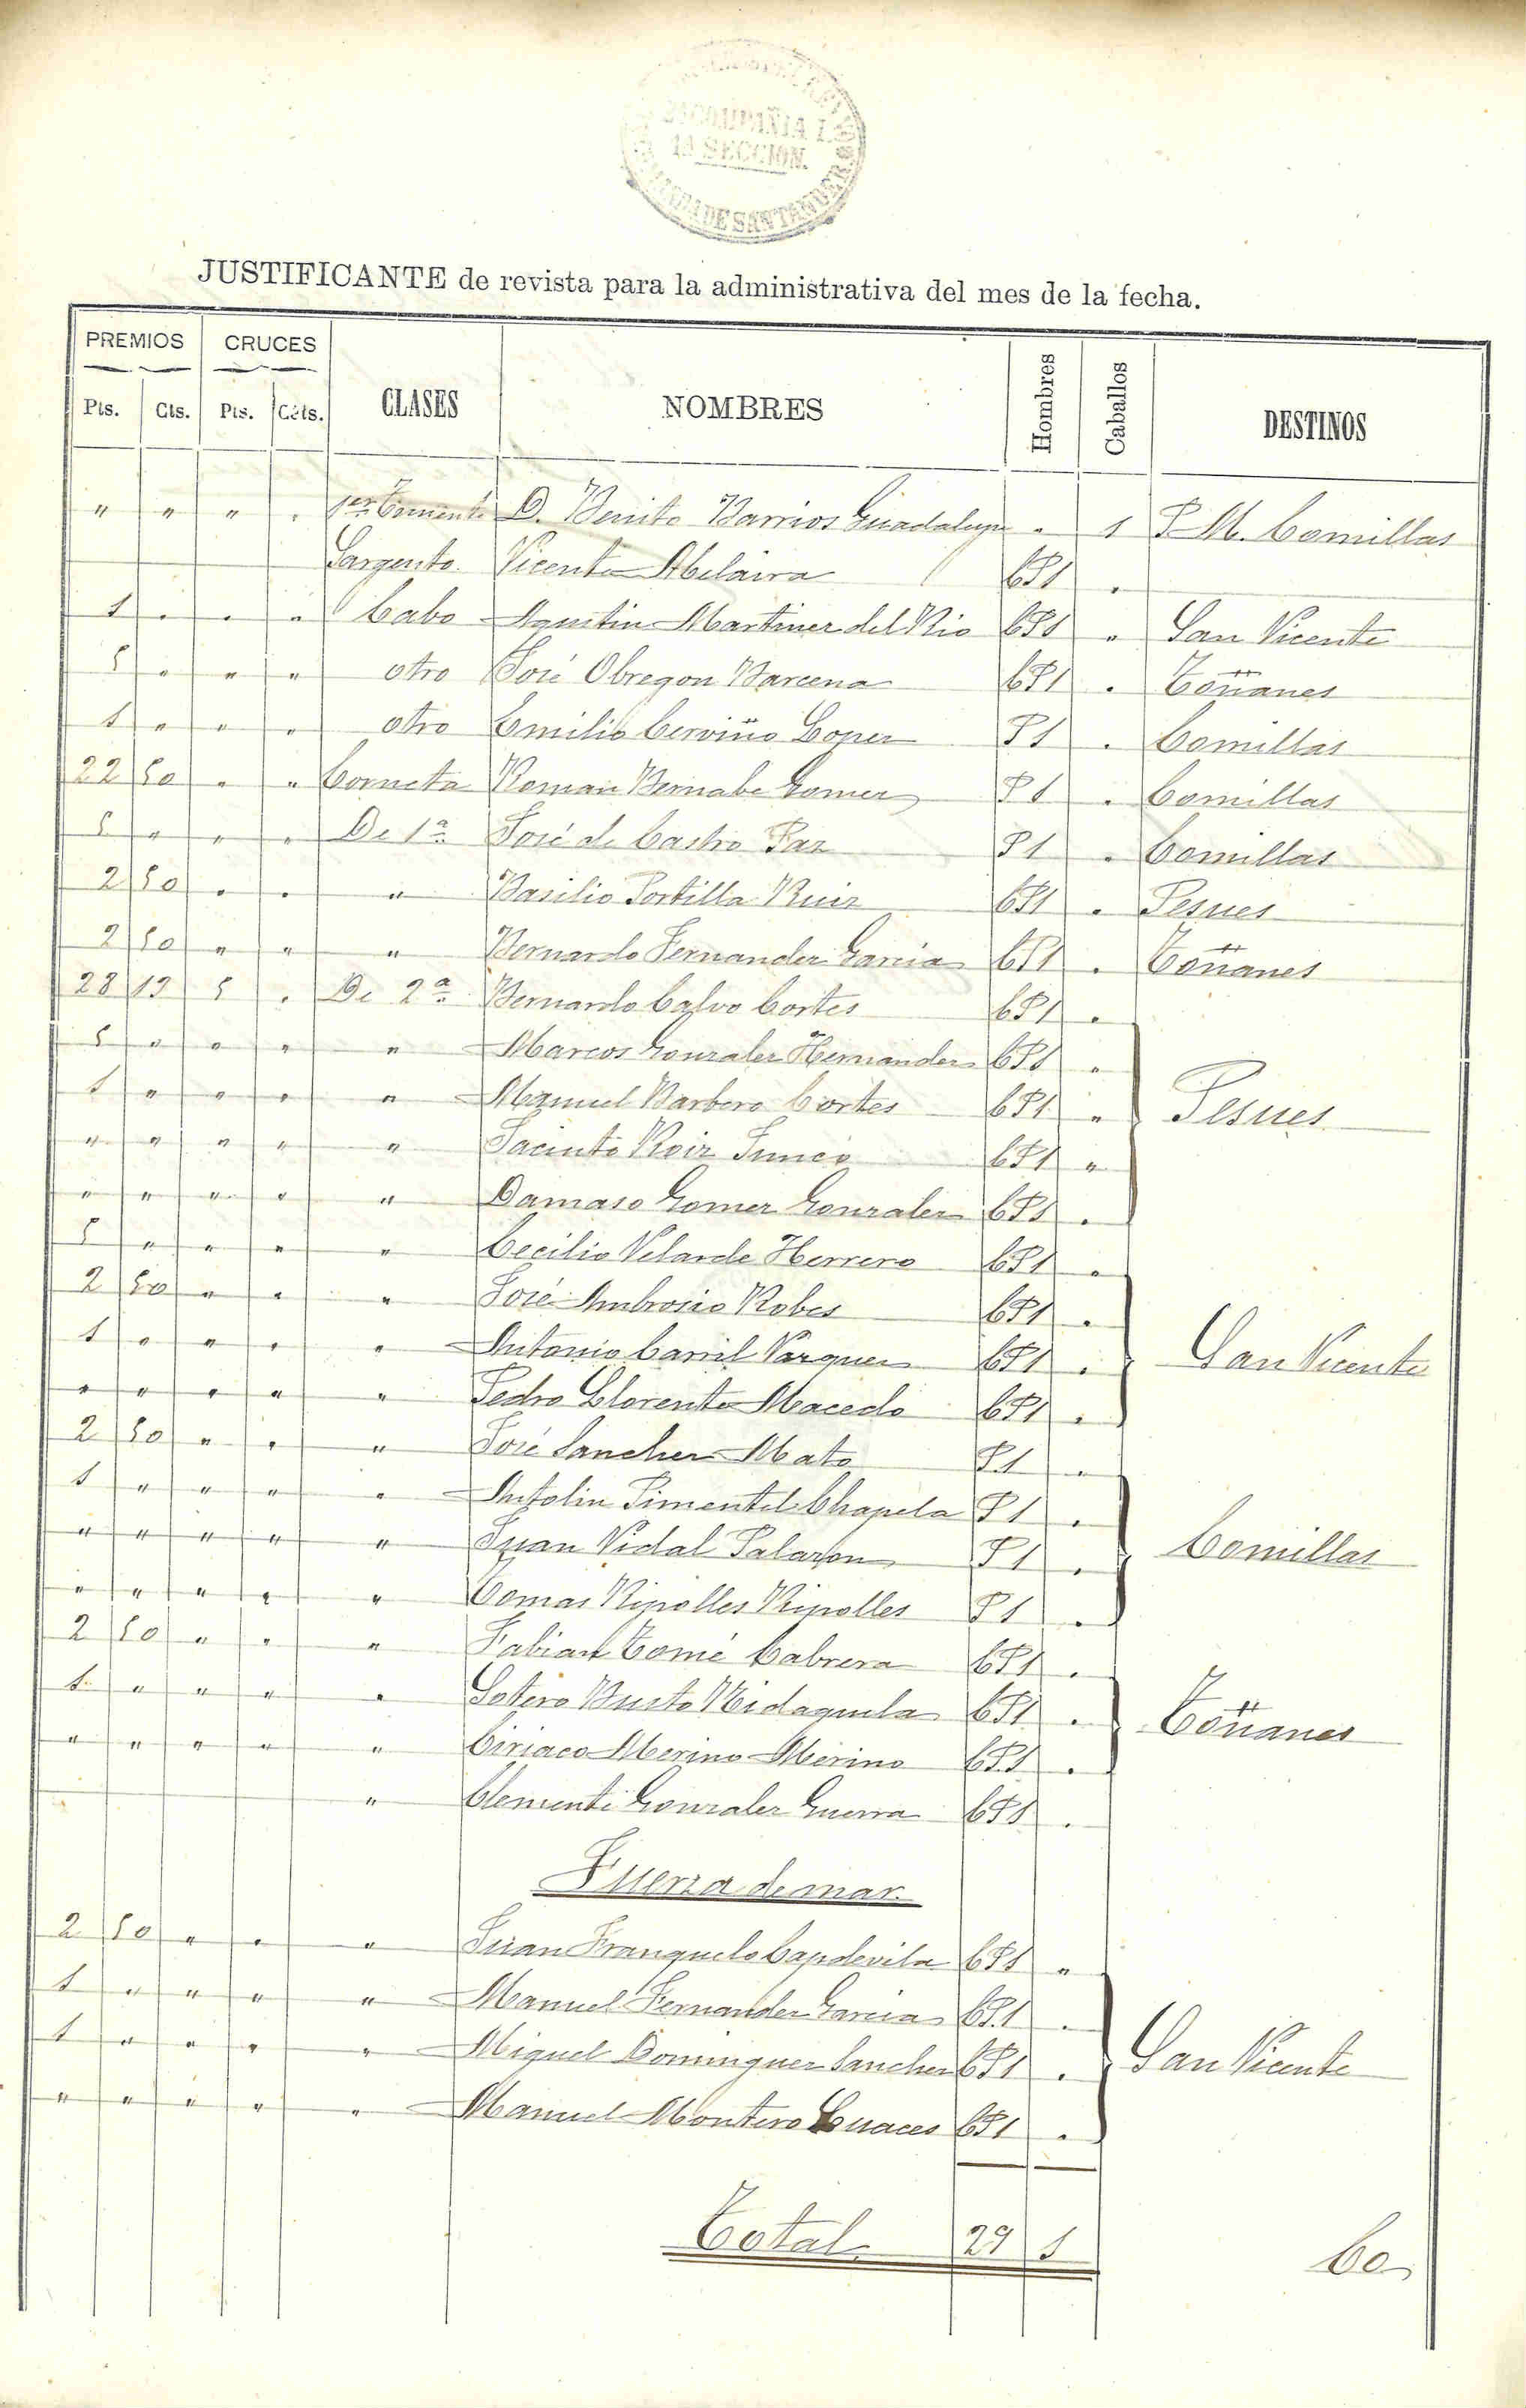 COMPAÑIA
1ª SECCION.
DE SANTANDER.
JUSTIFICANTE de revista para la administrativa del mes de la fecha.
PREMIOS CRUCES CLASES NOMBRES Hombres Caballos DESTINOS
Pts. Cts. Pts. Céts.
" " " " 1er Teniente D. Benito Barrios Guadalupe " 1 P. M. Comillas
Sargento Vicente Abelaira CP1 "
1 " " " Cabo Agustin Martinez del Rio CP1 " San Vicente
5 " " " otro José Obregon Barcena CP1 " Toñanes
1 " " " otro Emilio Cerviño Lopez P1 " Comillas
22 50 " " Corneta Roman Bernabe Gomez P1 " Comillas
5 " " " De 1ª José de Castro Paz P1 " Comillas
2 50 " " " Basilio Portilla Ruiz CP1 " Pesues
2 50 " " " Bernardo Fernandez Garcia CP1 " Toñanes
28 13 5 " De 2ª Bernardo Calvo Cortes CP1 "
5 " " " " Marcos Gonzalez Hernandez CP1 "
1 " " " " Manuel Barbero Cortes CP1 " Pesues
" " " " " Jacinto Roiz Junco CP1 "
" " " " " Damaso Gomez Gonzalez CP1 "
5 " " " " Cecilio Velarde Herrero CP1 "
2 50 " " " José Ambrosio Robes CP1 "
1 " " " " Antonio Carril Vazquez CP1 " San Vicente
" " " " " Pedro Llorente Macedo CP1 "
2 50 " " " José Sanchez Mato P1 "
1 " " " " Antolin Pimentel Chapela P1 "
" " " " " Juan Vidal Palazon P1 " Comillas
" " " " " Tomas Ripolles Ripolles P1 "
2 50 " " " Fabian Tomé Cabrera CP1 "
1 " " " " Sotero Busto CP1 " Toñanes
" " " " " Ciriaco Merino Merino CP1 "
" Clemente Gonzalez Guerra CP1 "
Fuerza de mar.
2 50 " " " Juan Franquelo Capdevila CP1 "
1 " " " " Manuel Fernandez Garcia CP1 "
1 " " " " Miguel Dominguez Sanchez CP1 " San Vicente
" " " " " Manuel Montero Luaces CP1 "
Total 29 1
Co